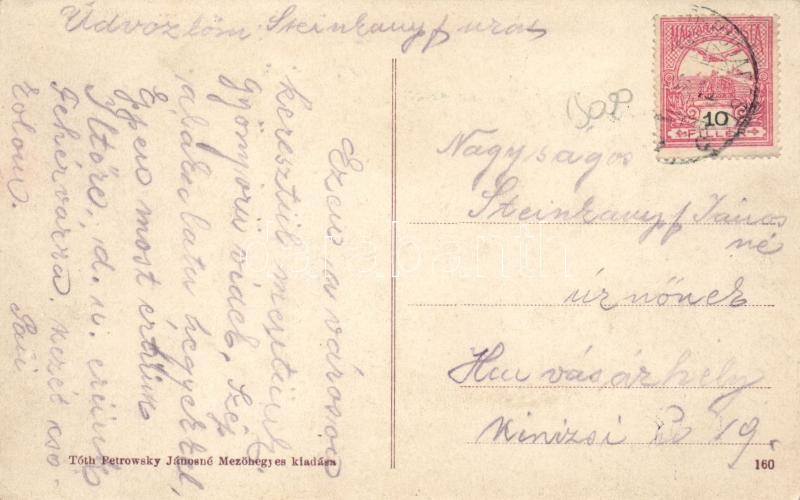 Üdvözlöm Steinkanyf urat
Ezen a városon
keresztül mentünk,
gyönyörü videk, szép
alakulatu hegyekkel,
Eppen most értünk
d. u. érünk
Fehérvárra. kezét csó-
kolom.
Pali
MAGYAR KIR. POSTA
10
FILLÉR
Nagyságos
Steinkanyf János
né
úrnőnek
Hm vásárhely
Kinizsi u 19.
Tóth Petrowsky Jánosné Mezőhegyes kiadása
160
darabanth